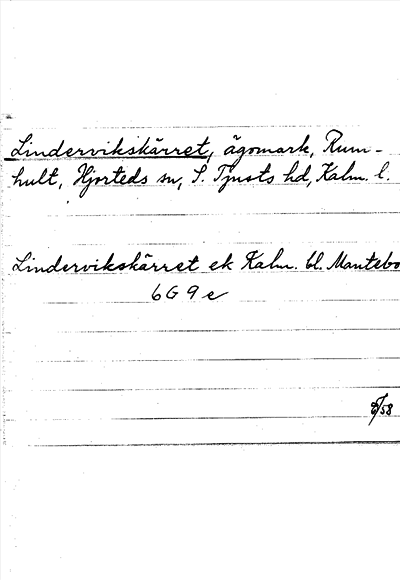 Lindervikskärret, ägomark, Rum-
hult, Hjorteds sn, S. Tjusts hd, Kalm. l.
Lindervikskärret ek Kalm. bl. Mantebo
6G9e
/58